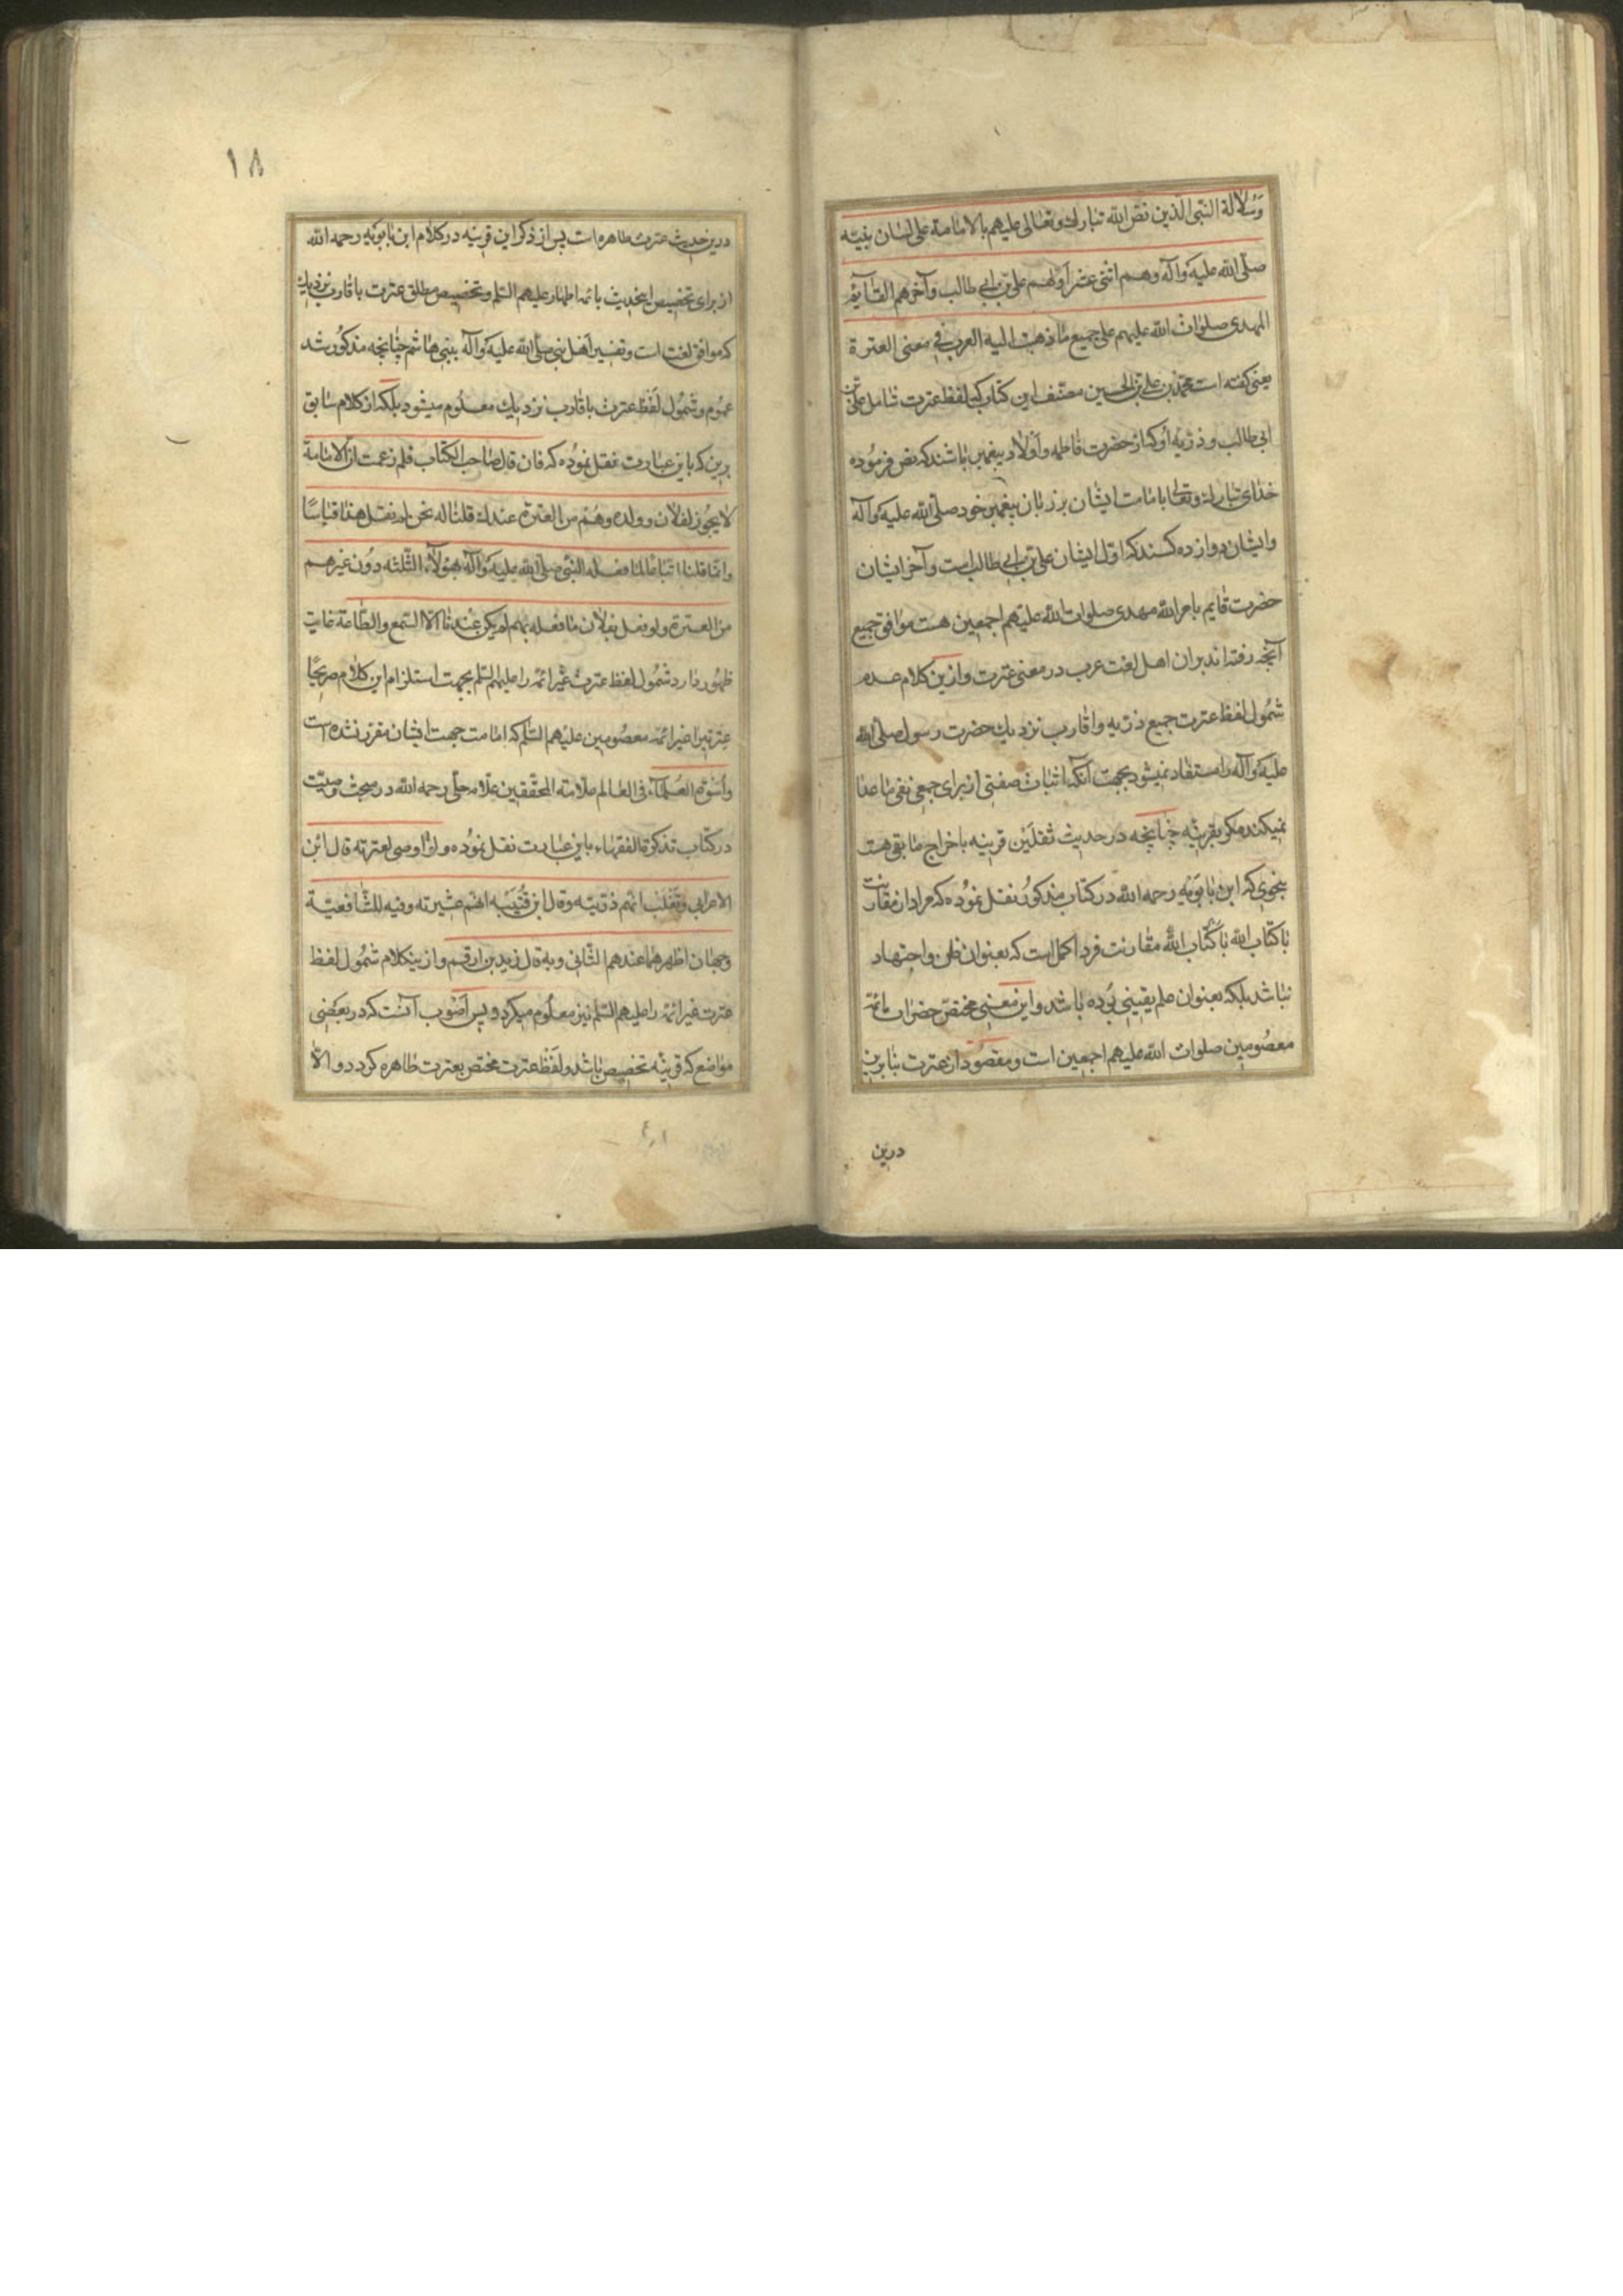 وسلالة النبی الذین نص الله تبارك وتعالی علیهم بالامامة علی لسان نبیّه
صلّی الله علیه وآله وهم اثنی عشر اوّلهم علیّ بن ابی طالب وآخرهم القآیم
المهدی صلوات الله علیهم علی جمیع ما ذهبت الیه العرب فی معنی العترة
یعنی کفته است محمّد بن علی بن الحسین مصنّف این کتاب که لفظ عترت شامل علی بن
ابی طالب و ذرّیه او کنا از حضرت فاطمه و اولاد پیغمبر باشند که نص فرموده
خدای تبارك وتعالی بامامت ایشان بر زبان پیغمبر خود صلی الله علیه وآله
وایشان دوازده کسند که اوّل ایشان علی بن ابی طالب است وآخر ایشان
حضرت قایم بامر الله مهدی صلوات الله علیهم اجمعین هست موافق جمیع
آنچه رفته اند بران اهل لغت عرب در معنی عترت وازین کلام عدم
شمول لفظ عترت جمیع ذرّیه واقارب نزدیك حضرت رسول صلی الله
علیه وآله را مستفاد نمیشود بجهت آنکه اثبات صفتی از برای جمعی نفی ما عدا
نمیکند مکر بقرینه چنانچه در حدیث ثقلین قرینه باخراج ما بقی هست
بنحوی که ابن بابویه رحمه الله در کتاب مذکور نقل نموده که مراد از مقارنت
با کتاب الله با کتاب الله مقارنت فرد اکمل است که بعنوان ظن واجتهاد
نباشد بلکه بعنوان علم یقینی بوده باشد واین معنی مختصّ حضرات ائمّه
معصومین صلوات الله علیهم اجمعین است ومقصود از عترت بنابرین
درین
۱۸
درین حدیث عترت طاهره است پس از ذکر این قرینه در کلام ابن بابویه رحمه الله
از برای تخصیص اینحدیث بائمه اطهار علیهم السّلم وتخصیص مطلق عترت باقارب نزدیك
که موافق لغت است وتفسیر اهل نبی صلی الله علیه وآله ببنی هاشم چنانچه مذکور شد
عموم وشمول لفظ عترت باقارب نزدیك معلوم میشود بلکه از کلام سابق
برین که باین عبارت نقل نموده که فان قال صاحب الکتاب فلم زعمت ان الامامة
لا یجوز لفلان وولده وهم من العترة عندك قلنا له نحن لم نقل هذا قیاسًا
وانّما قلنا اتباعًا لما فعله النبی صلی الله علیه وآله بهؤلآء الثلثه دون غیرهم
من العترة ولو فعل بفلان ما فعله بهم لم یکن عندنا الّا السّمع والطّاعة غایت
ظهور دارد شمول لفظ عترت غیر ائمه را علیهم السّلم بجهت استلزام این کلام صریحًا
عترتیرا غیر ائمّه معصومین علیهم السّلم که امامت جهت ایشان مقرّر نشده است
واسوة العلمآء فی العالم علّامة المحقّقین علّامه حلّی رحمه الله در مبحث وصیّت
در کتاب تذکرة الفقهاء باین عبارت نقل نموده ولو اوصی لعترته قال ابن
الاعرابی وثعلب انّهم ذرّیته وقال ابن قتیبه انّهم عشیرته وفیه للشافعیّة
وجهان اظهرهما عندهم الثّانی وبه قال زید بن ارقم واز ینکلام شمول لفظ
عترت غیر ائمّه را علیهم السّلم نیز معلوم میکردد پس اصوب آنست که در بعضی
مواضع که قرینه تخصیص باشد ولفظ عترت مختص بعترت طاهره کردد والّا